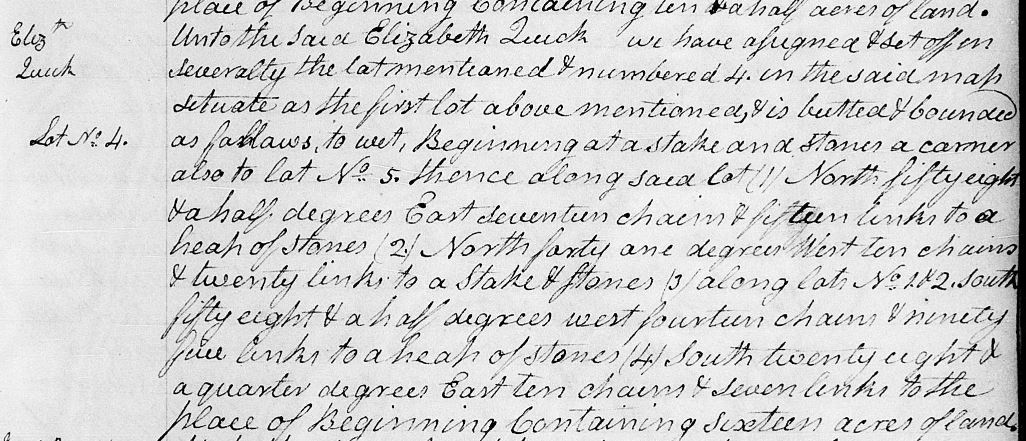 place of Beginning Containing ten & a half acres of land.
Eliz.th Quick
Unto the said Elizabeth Quick we have assigned & set off in
severalty the lot mentioned & numbered 4. in the said map
situate as the first lot above mentioned, & is butted & bounded
Lot No. 4.
as follows, to wit, Beginning at a stake and stones a corner
also to lot No. 5. thence along said lot (1) North fifty eight
& a half degrees East seventeen chains & fifteen links to a
heap of stones (2) North forty one degrees West ten chains
& twenty links to a stake & stones (3) along lots No. 1 & 2. South
fifty eight & a half degrees west fourteen chains & ninety
five links to a heap of stones (4) South twenty eight &
a quarter degrees East ten chains & seven links to the
place of Beginning Containing sixteen acres of land.